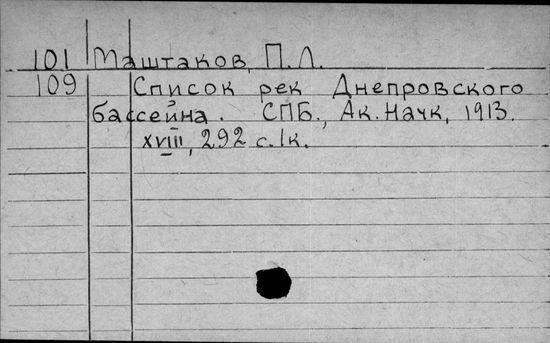 101 Маштаков, П.Л.
109 Список рек Днепровского
бассейна. СПБ., Ак. Наук, 1913.
XVIII, 292 с. 1к.